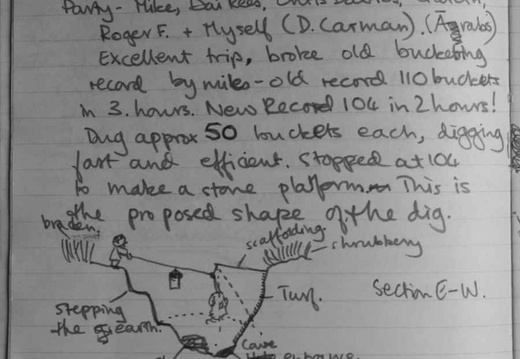 Party- Mike, Dai Rees, Chris
Roger F. + Myself (D. Carman). (Agrabs)
Excellent trip, broke old bucketing
record by miles - old record 110 buckets
in 3. hours. New Record 104 in 2 hours!
Dug approx 50 buckets each, digging
fast and efficient. Stopped at 104
to make a stone platform. This is
the proposed shape of the dig.
scaffolding.
shrubbery
Turf.
Section E-W.
Stepping
the earth.
Cave
entrance.